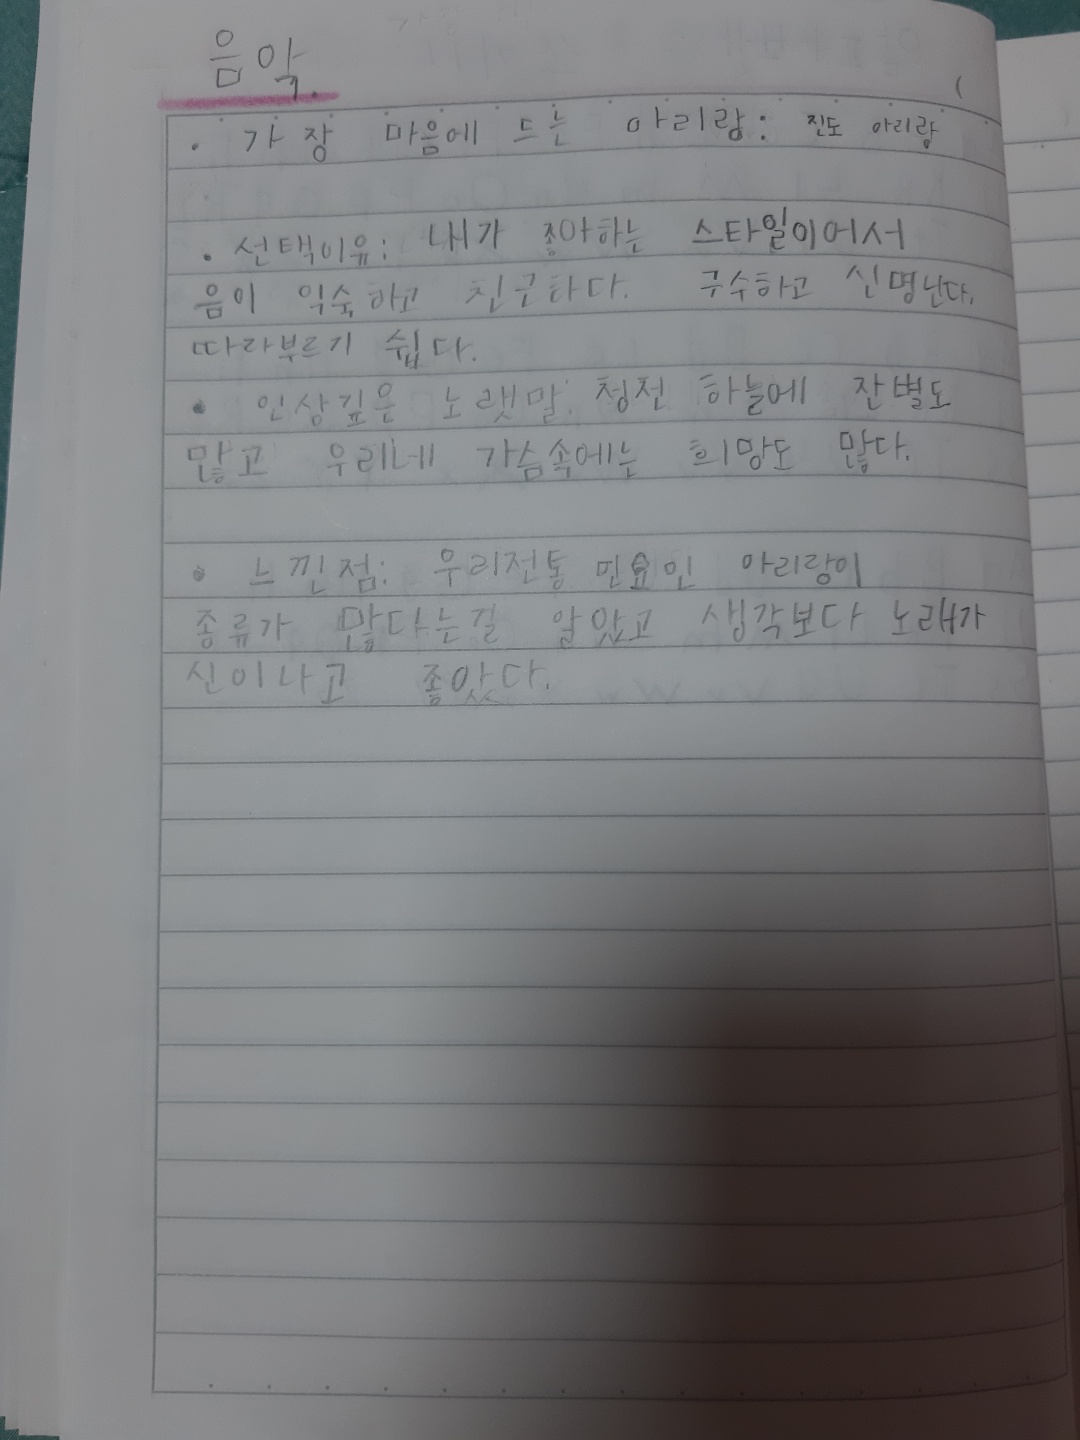 음악.
· 가장 마음에 드는 아리랑: 진도 아리랑
· 선택이유: 내가 좋아하는 스타일이어서
음이 익숙하고 친근하다. 구수하고 신명난다.
따라부르기 쉽다.
· 인상깊은 노랫말: 청천 하늘에 잔별도
많고 우리네 가슴속에는 희망도 많다.
· 느낀점: 우리전통 민요인 아리랑이
종류가 많다는걸 알았고 생각보다 노래가
신이나고 좋았다.